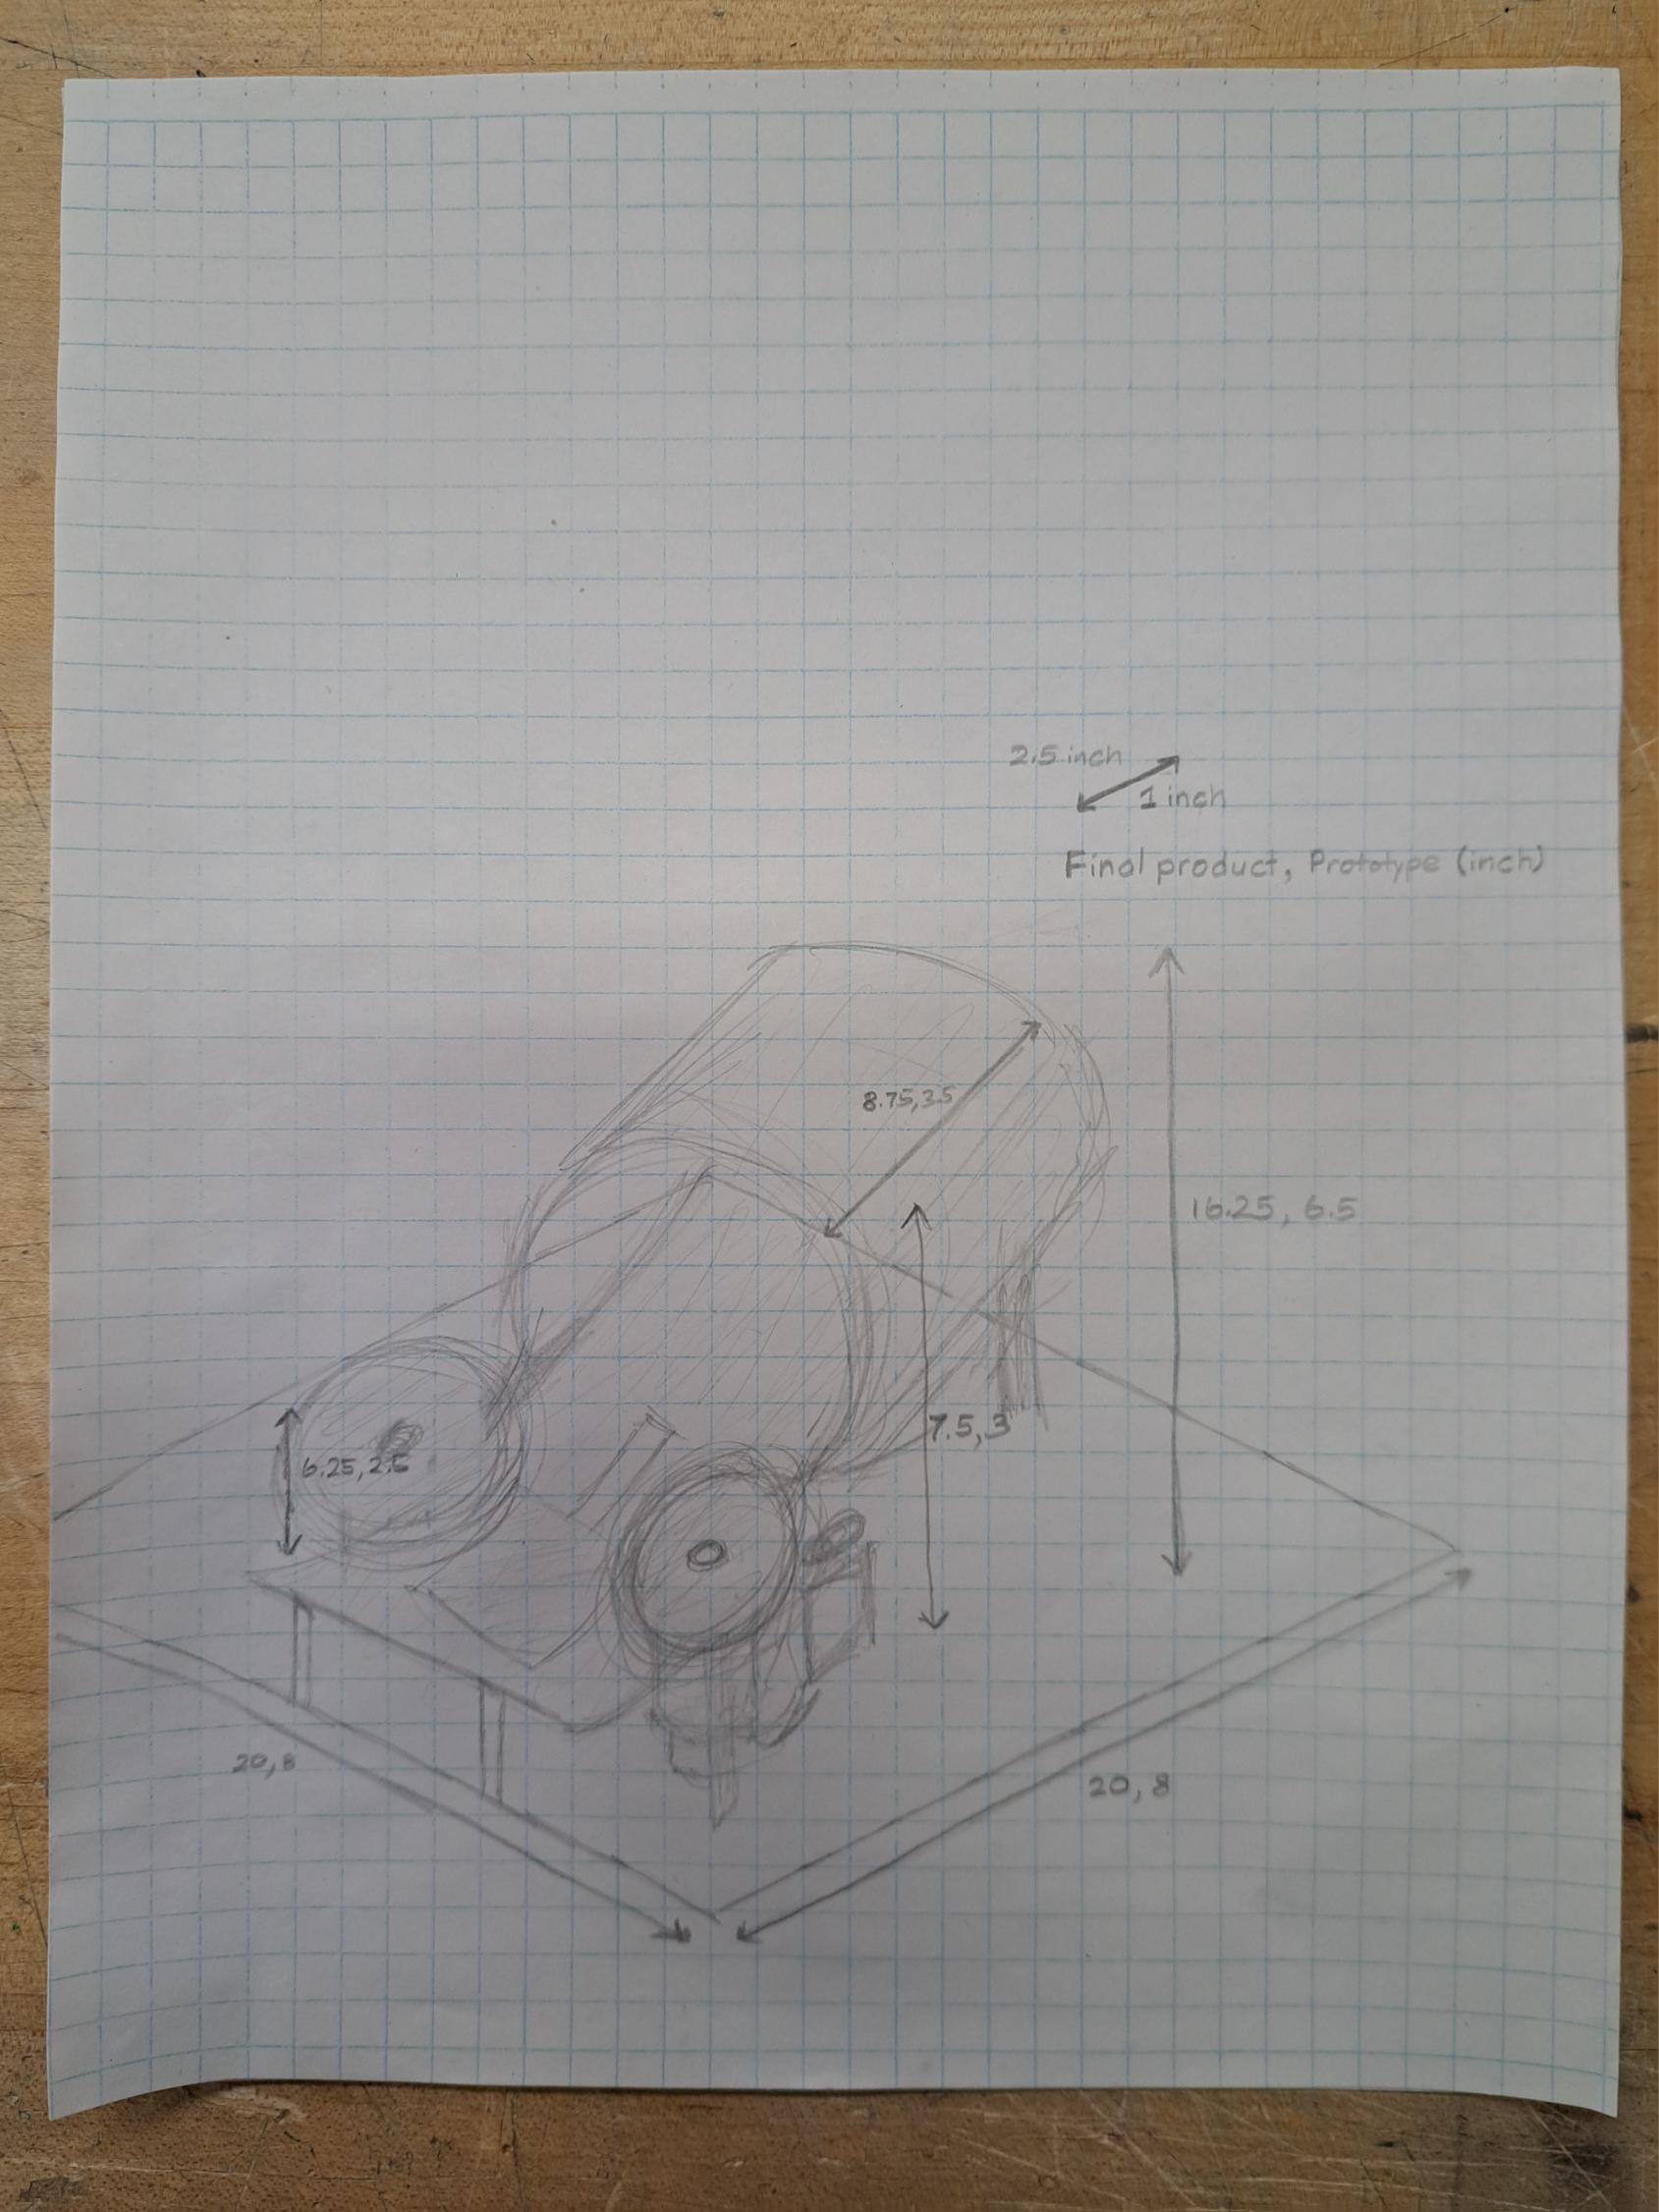 2.5 inch
1 inch
Final product, Prototype (inch)
8.75,3.5
16.25, 6.5
7.5,3
6.25,2.5
20,8
20,8